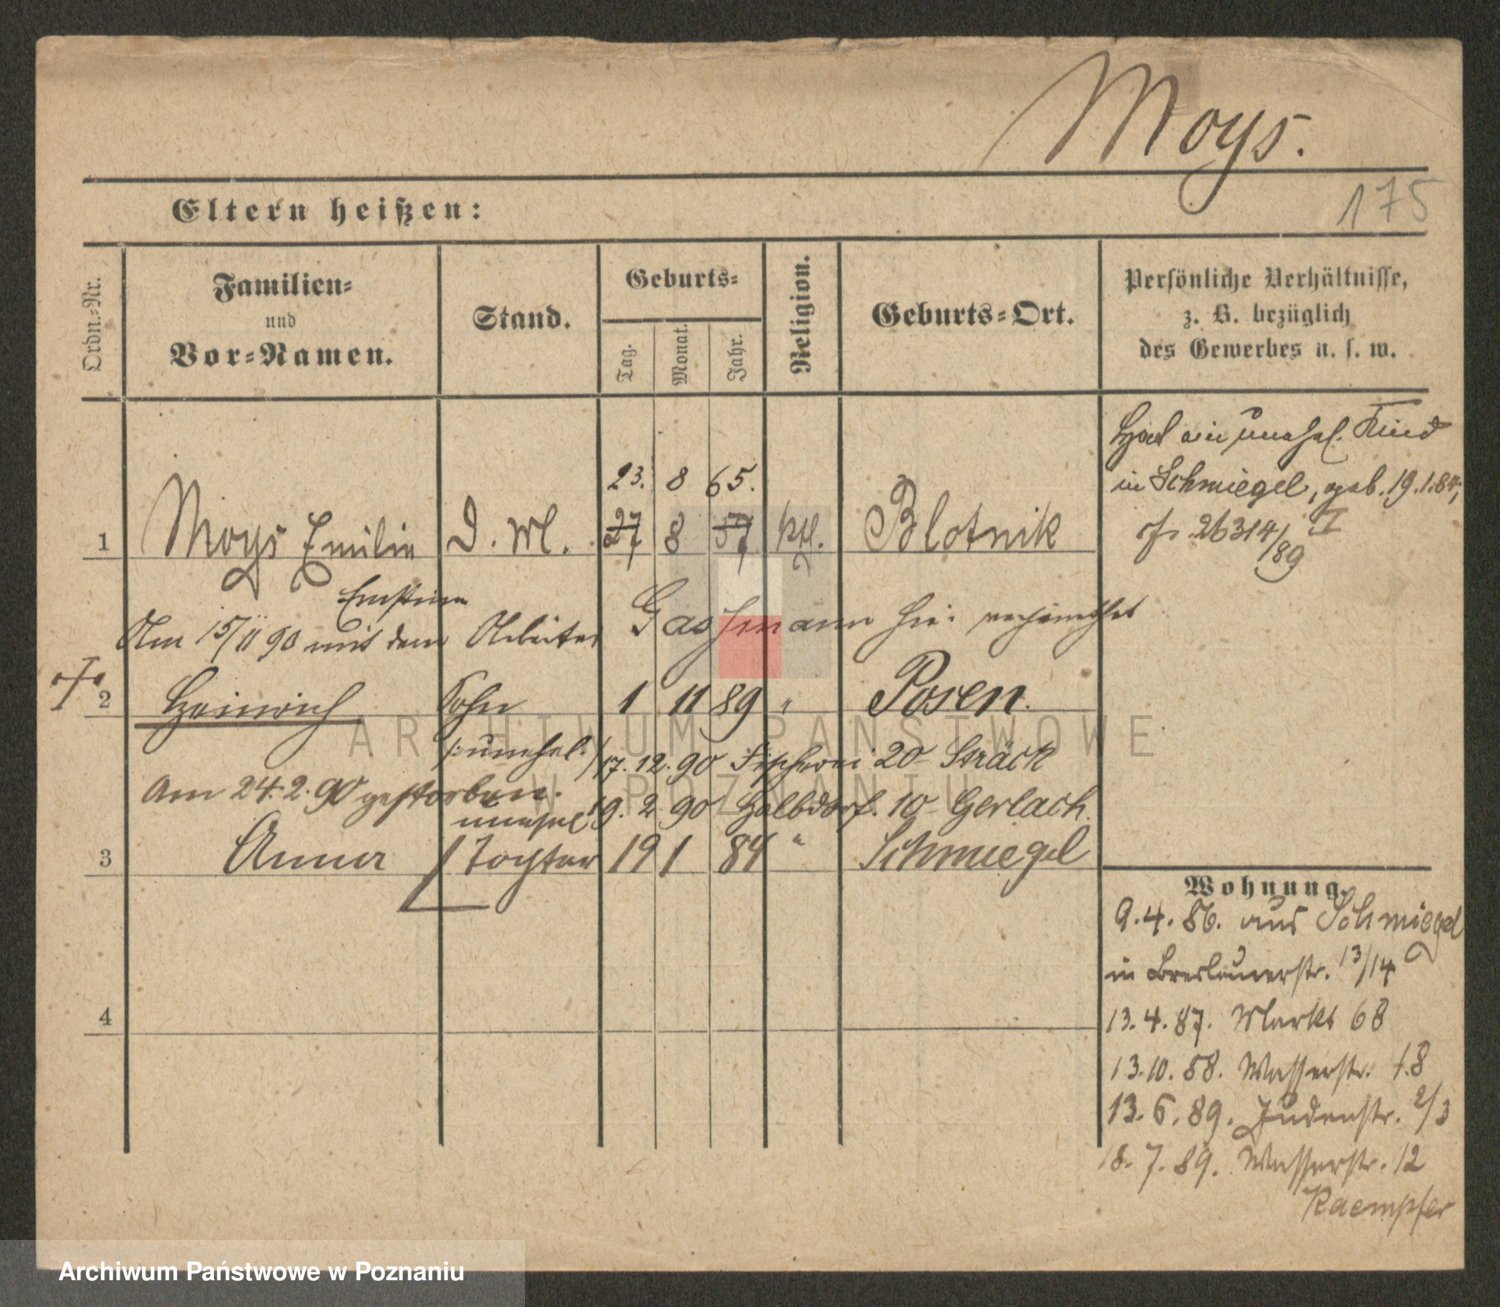 Moys.
175
Eltern heißen:
Ordn.-Nr.
Familien-
und
Vor-Namen.
Stand.
Geburts-
Tag.
Monat.
Jahr.
Religion.
Geburts-Ort.
Persönliche Verhältnisse,
z. B. bezüglich
des Gewerbes u. s. w.
Hat ein unehel. Kind
in Schmiegel, geb. 19.1.84,
26314/89 II
23. 8 65.
1 Moys Emilie D. M. 27 8 57 ktl. Blotnik
Ernstine
Am 15/11 90 mit dem Arbeiter Gassmann hier verheirathet
2 Heinrich Sohn 1 11 89 " Posen.
unehel. 17. 12. 90 Fischerei 20 Sträck
Am 24.2.90 gestorben. 19. 2 90 Halbdorf. 10 Gerlach.
unehel
3 Anna Tochter 19 1 84 " Schmiegel
4
Wohnung.
9.4.86. aus Schmiegel
in Breslauerstr. 13/14
13.4.87. Markt 68
13.10.88. Wasserstr. 18
13.6.89. Judenstr. 2/3
18.7.89. Wasserstr. 12
Kaempfer
ARCHIWUM PAŃSTWOWE
W POZNANIU
Archiwum Państwowe w Poznaniu